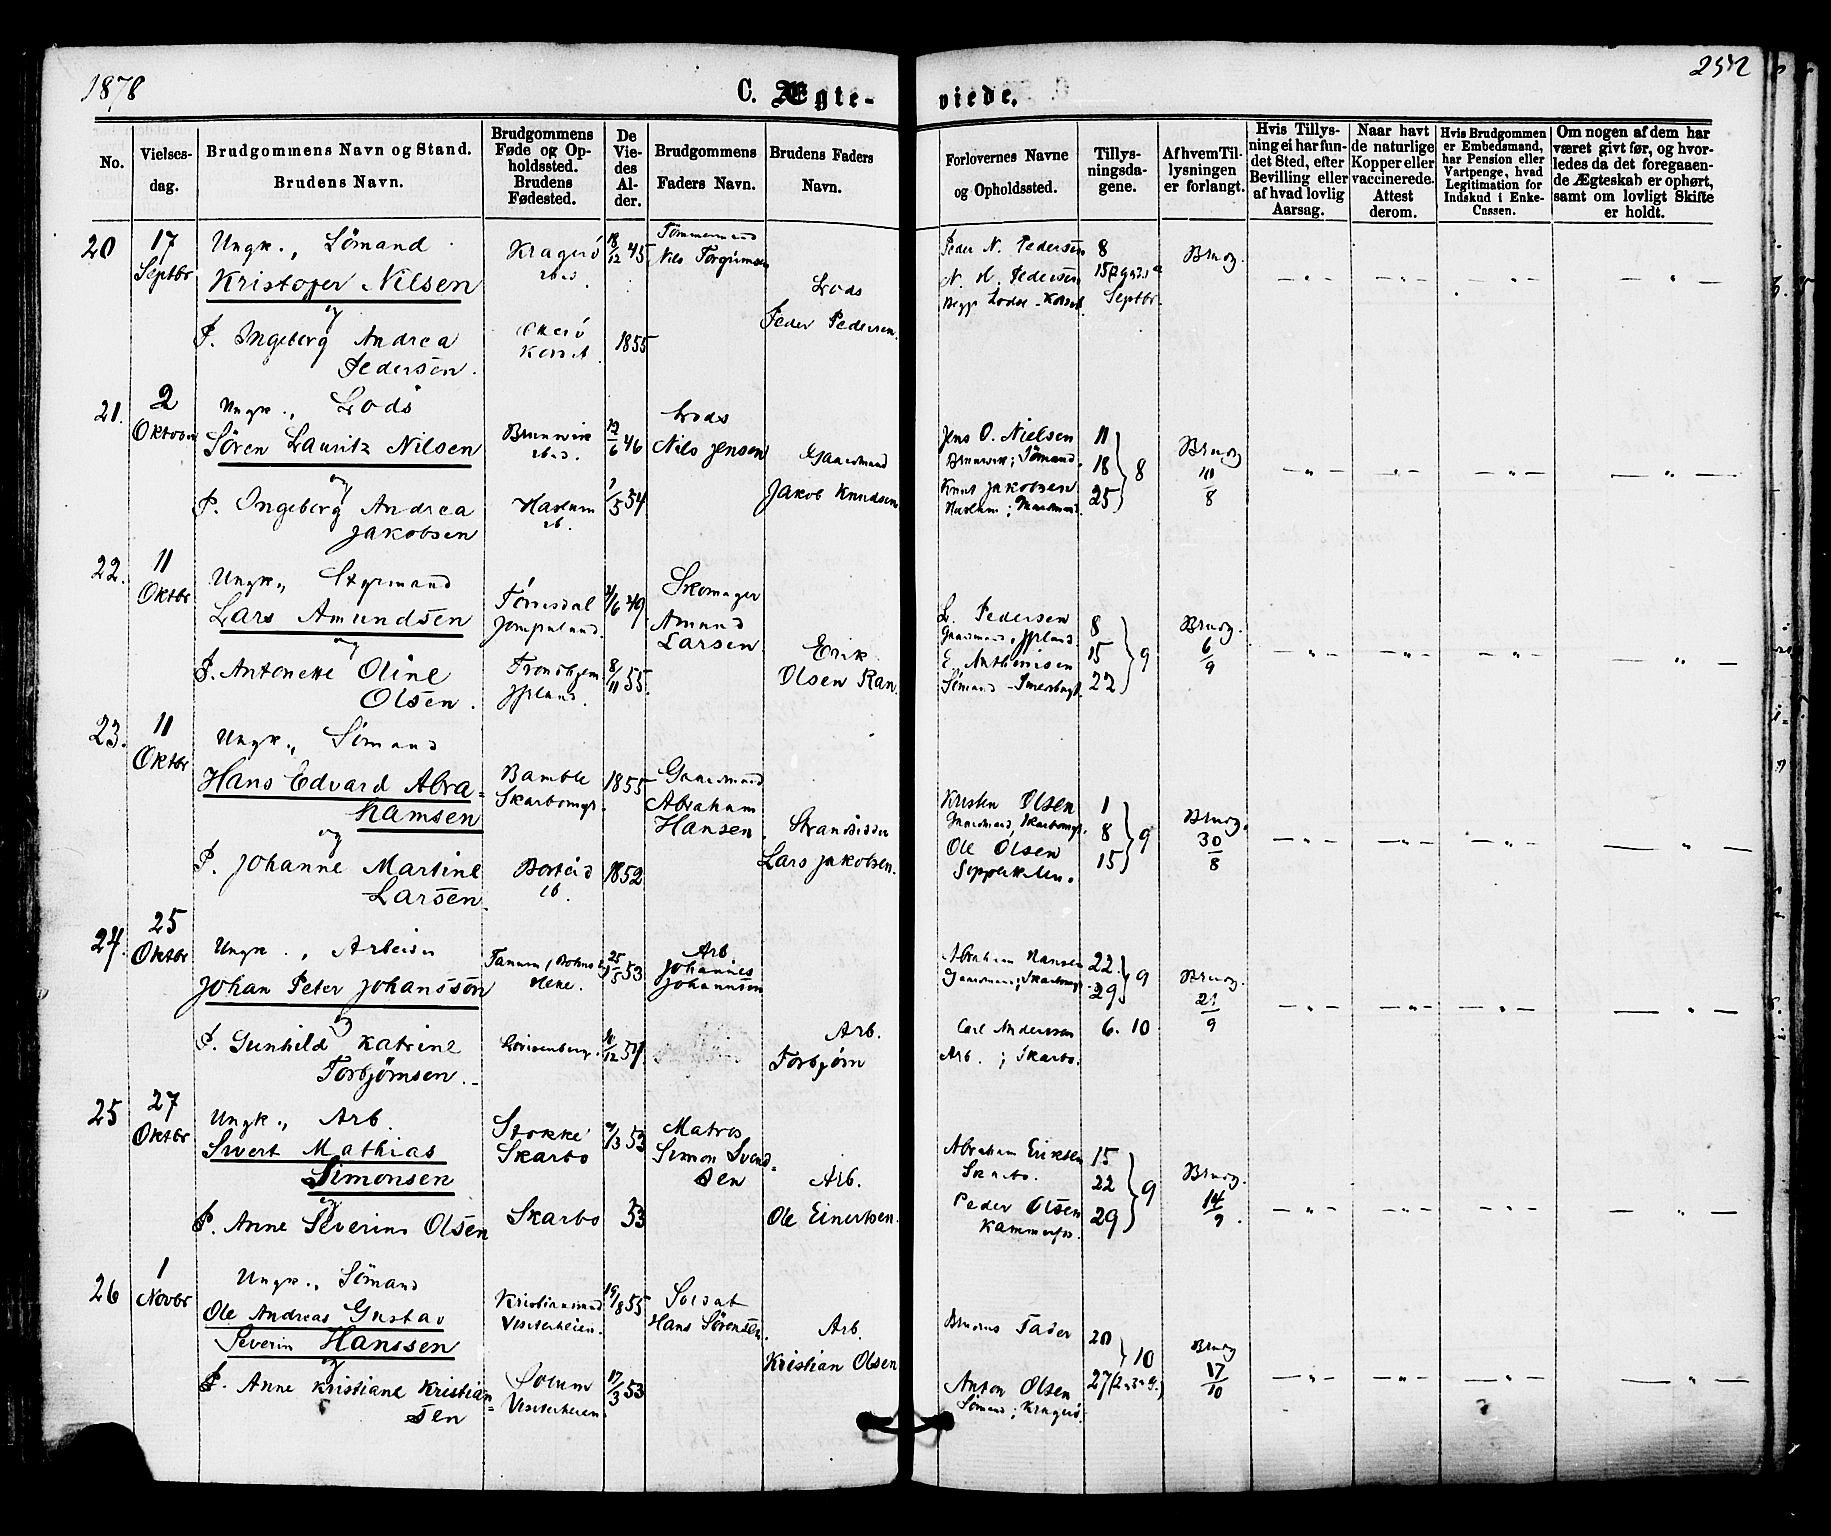 1878
C. Ægte-
viede.
252
No.
Vielses-
dag.
Brudgommens Navn og Stand.
Brudens Navn.
Brudgommens
Føde og Op-
holdssted.
Brudens
Fødested.
De
Vie-
des
Al-
der.
Brudgommens
Faders Navn.
Brudens Faders
Navn.
Forlovernes Navne
og Opholdssted.
Tillys-
ningsda-
gene.
Af hvem Til-
lysningen
er forlangt.
Hvis Tillys-
ning ei har fun-
det Sted, efter
Bevilling eller
af hvad lovlig
Aarsag.
Naar havt
de naturlige
Kopper eller
vaccinerede.
Attest
derom.
Hvis Brudgommen
er Embedsmand,
har Pension eller
Vartpenge, hvad
Legitimation for
Indskud i Enke-
Cassen.
Om nogen af dem har
været givt før, og hvor-
ledes da det foregaaen-
de Ægteskab er ophørt,
samt om lovligt Skifte
er holdt.
20
17
Septbr
Ungk., Sömand
Kristofer Nilsen
og
P. Ingeborg Andrea
Pedersen.
Kragerö
18/12 45
1855
Tömmermand
Nils
Lods
Peder Pedersen.
Peder N. Pedersen
N. H. Pedersen
8
15
Septbr.
Brudg.
21.
2
Ungk., Lods
Sören Lauritz Nilsen
og
P. Ingeborg Andrea
Jakobsen
12/6 46
1/5 54
Lods
Nils Jensen
Gaardmand
Jakob Knudsen
Jens O. Nielsen
Sömand.
Knut Jakobsen
11
18
25
} 8
Brudg
10/8
22.
11
Oktbr
Ungk., Styrmand
Lars Amundsen
og
P. Antonette Oline
Olsen.
49.
8/11 55.
Skomager
Amund
Larsen
Erik
Olsen Ran.
L. Pedersen
Sömand
8
15
22
} 9
Brudg.
6/9
23.
11
Oktbr
Ungk., Sömand
Hans Edvard Abra-
hamsen
og
P. Johanne Martine
Larsen.
Bamble
1855
1852
Gaardmand
Abraham
Hansen.
Strandsidder
Lars Jakobsen.
Kristen Olsen
Ole Olsen
1
8
15
} 9
Brudg.
30/8
24.
25
Oktbr
Ungk., Arbeider
Johan Peter Johanssön
og
P. Gunhild Katrine
Torbjörnsen.
25/5 53
Arb
Johannes
Johannsen
Arb.
Torbjörn
Abraham Hansen
Carl Andersson
Arb. ; Skarbo.
22.
29
} 9
6. 10
Brudg.
21/9
25
27
Oktbr
Ungk., Arb.
Sivert Mathias
Simonsen
og
P. Anne Severine Olsen
Stokke
Skarbo
Skarbo
53
53
Matros
Simon Svend-
sen
Arb.
Ole Einertsen.
Abraham Eriksen
Skarbo.
Peder Olsen
15
22
29
} 9
Brudg.
14/9.
26
1
Novbr
Ungk., Sömand
Ole Andreas Gustav
Severin Hanssen
og
P. Anne Kristiane Kristian-
sen
Kristianssand
Vesterheien.
Solum
Vesterheien.
19/8 55
17/3 53
Soldat
Hans Sörensen.
Arb.
Kristian Olsen
Brudens Fader
Anton Olsen
Sömand; Kragerö.
20
27
} 10
Brudg
17/10